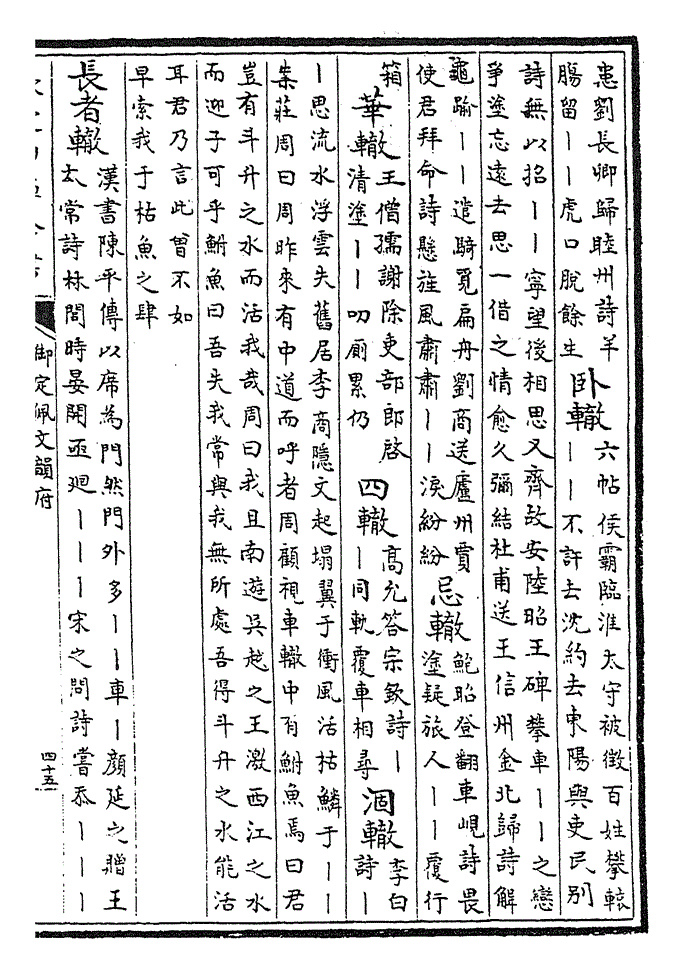 恚劉長卿歸睦州詩羊
腸留丨丨虎口脫餘生
卧轍
六帖侯霸臨淮太守被徵百姓攀轅
丨丨不許去沈約去東陽與吏民別
詩無以招丨丨寧望後相思又齊故安陸昭王碑攀車丨丨之戀
爭塗忘遠去思一借之情愈久彌結杜甫送王信州金北歸詩解
龜踰丨丨遣騎覓扁舟劉商送廬州賈
使君拜命詩懸旌風肅肅丨丨淚紛紛
忌轍
鮑昭登翻車峴詩畏
塗疑旅人丨丨覆行
箱
華轍
王僧孺謝除吏部郎啓
清塗丨丨叨厠累仍
四轍
高允答宗欽詩丨
丨同軌覆車相尋
涸轍
李白
詩丨
丨思流水浮雲失舊居李商隱文起塌翼于衝風活枯鱗于丨丨
案莊周曰周昨來有中道而呼者周顧視車轍中有鮒魚焉曰君
豈有斗升之水而活我哉周曰我且南遊吳越之王激西江之水
而迎子可乎鮒魚曰吾失我常與我無所處吾得斗升之水能活
耳君乃言此曾不如
早索我于枯魚之肆
長者轍
漢書陳平傳以席為門然門外多丨丨車丨顏延之贈王
太常詩林閭時晏開亟廻丨丨丨宋之問詩嘗忝丨丨丨
御定佩文韻府
四十五